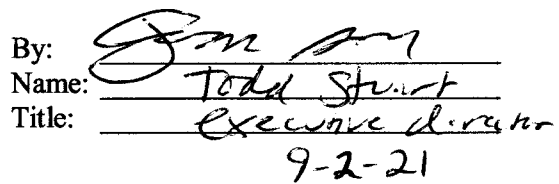 By:
Name: Todd Stuart
Title: executive director
9-2-21